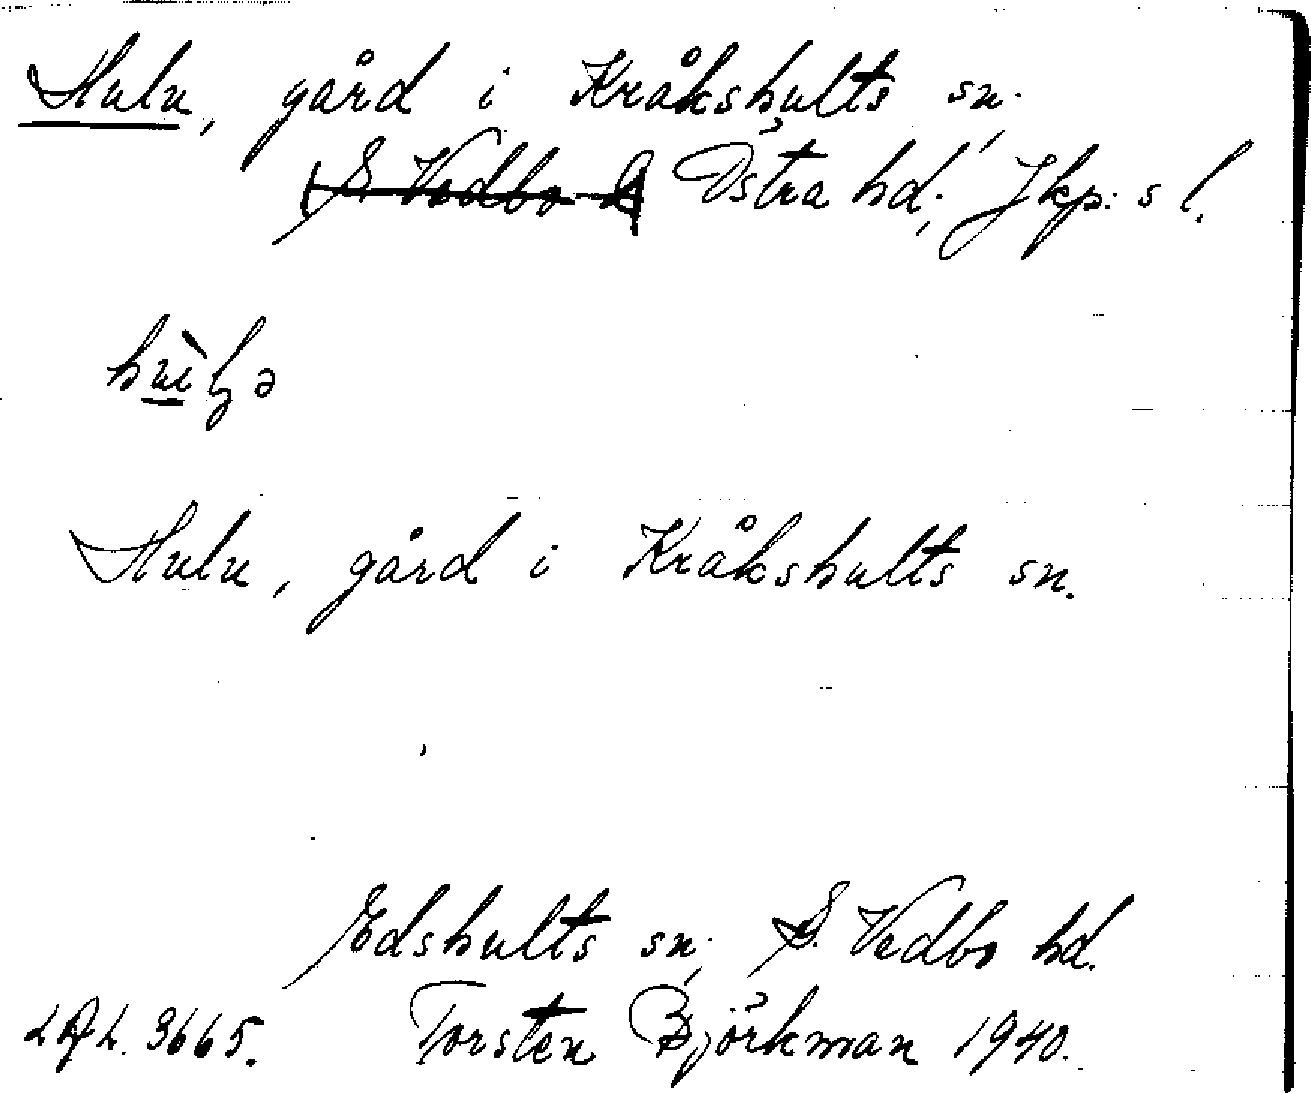 Hulu, gård i Kråkshults sn.,
S. Vedbo Östra hd., Jkp:s l.
Hulu, gård i Kråkshults sn.
Edshults sn., S. Vedbo hd.
3665. Torsten Björkman 1940.